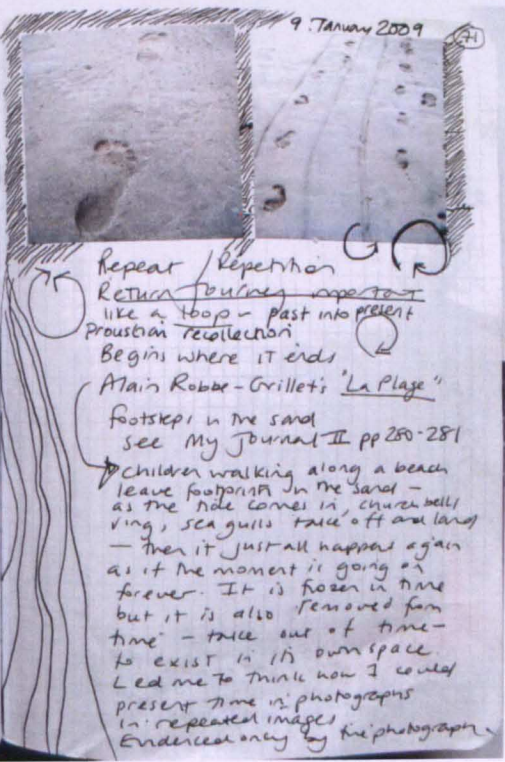 9. January 2009
71
Repeat / Repetition
Return Journey important
like a loop - past into present
Proustian recollection
Begins where it ends
Alain Robbe-Grillet's "La Plage"
footsteps in the sand
see My Journal II pp 280-281
children walking along a beach
leave footprints in the sand -
as the tide comes in, church bells
ring, sea gulls take off and land
- then it just all happens again
as if the moment is going on
forever. It is frozen in time
but it is also removed from
time - take out of time -
to exist in its own space.
Led me to think how I could
present time in photographs
in repeated images
Evidenced only by the photograph.